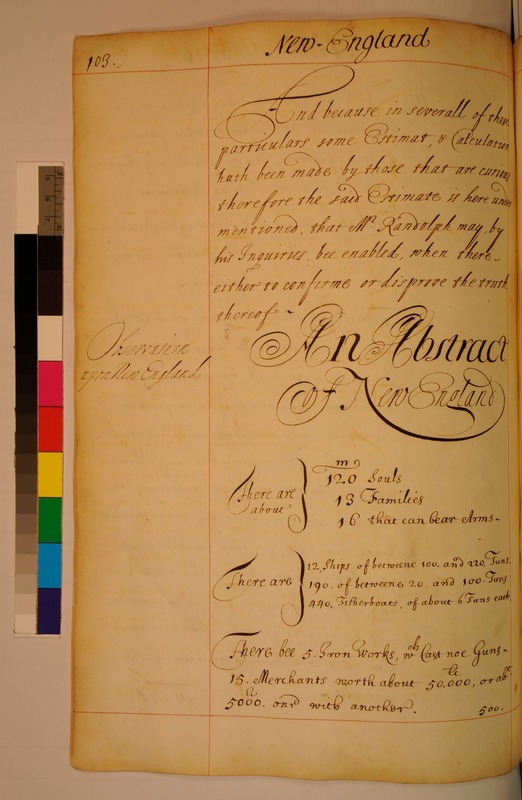 103.
New-England
And because in severall of these
particulars some Estimat, & Calculation
hath been made by those that are curious
therefore the said Estimate is here under
mentioned, that Mr Randolph may, by
his Inquiries, bee enabled, when there
either to confirme or disprove the truth
thereof -
Observation
upon New England
An Abstract
Of New England
There are
about
m
120 Souls
13 Families
16 that can bear Arms-
There are
12 Ships of betweene 100. and 220. Tuns.
190. of betweene 20. and 100. Tuns
440. Fisherboats, of about 6 Tuns each
There bee 5. Iron Works, wch Cast noe Guns-
15. Merchants worth about 50.000, or abt
5000. one with another.
500.